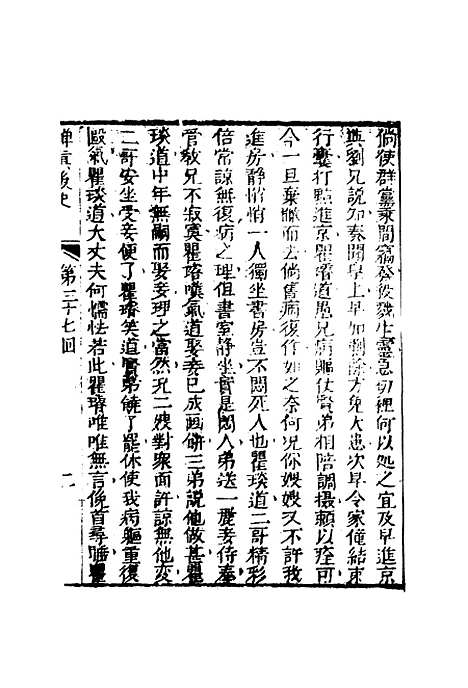 倘使群黨乘間竊發毀生靈急切裡何以処之宜及早進京
與劉兄說知奏聞早上早加剿除方免大患次早令家僮結束
行囊打點進京瞿璿道愚兄病軀仗賢弟相陪調攝頗以痊可
今一旦棄撇而去倘舊病復作如之奈何况你嫂嫂又不許我
進房静悄悄一人獨坐書房豈不悶死人也瞿琰道二哥精彩
倍常諒無復病之理但書室静坐實是悶人弟送一麗妾侍奉
管教兄不寂寞瞿璿嘆氣道娶妾已成画餅三弟說他做甚瞿
琰道中年無嗣而娶妾理之當然况二嫂對衆面許諒無他变
二哥安坐受妾便了瞿璿笑道賢弟饒了罷休使我病軀重復
毆氣瞿琰道大丈夫何懦怯若此瞿璿唯唯無言俛首尋睡瞿
禪真後史
第三十七回